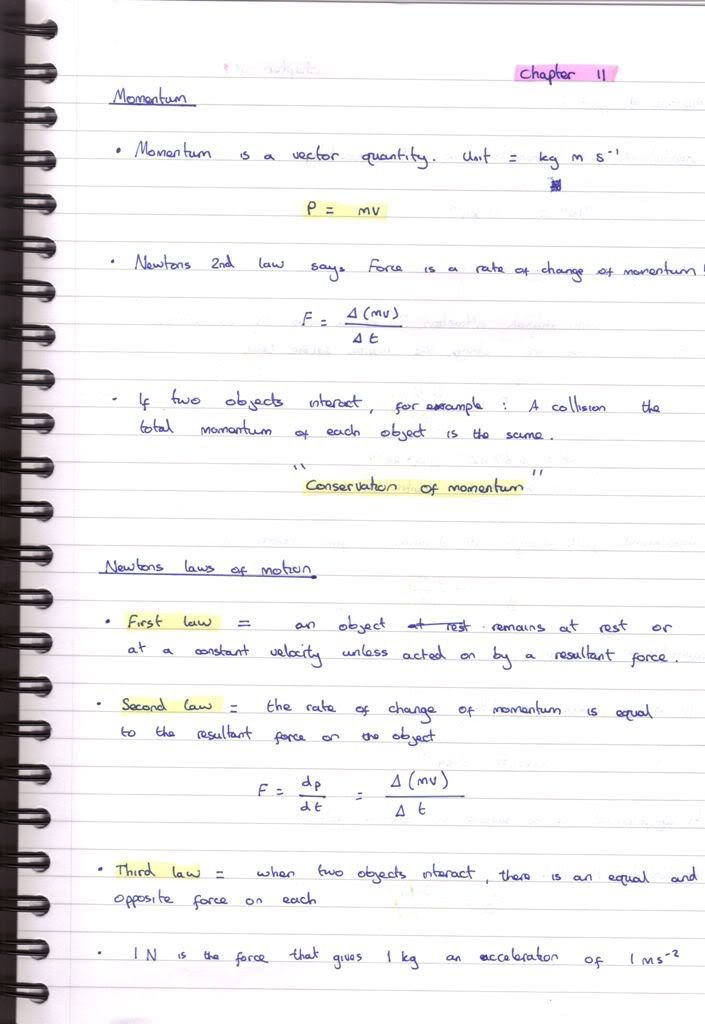 Chapter 11
Momentum
• Momentum is a vector quantity. Unit = kg m s⁻¹
P = mv
• Newtons 2nd law says Force is a rate of change of momentum!
F = Δ(mv) / Δt
• If two objects interact, for example : A collision the
total momentum of each object is the same.
"Conservation of momentum"
Newtons laws of motion
• First law = an object at rest remains at rest or
at a constant velocity unless acted on by a resultant force.
• Second law = the rate of change of momentum is equal
to the resultant force on the object
F = dp / dt = Δ(mv) / Δt
• Third law = when two objects interact, there is an equal and
opposite force on each
• 1 N is the force that gives 1 kg an acceleration of 1 ms⁻²